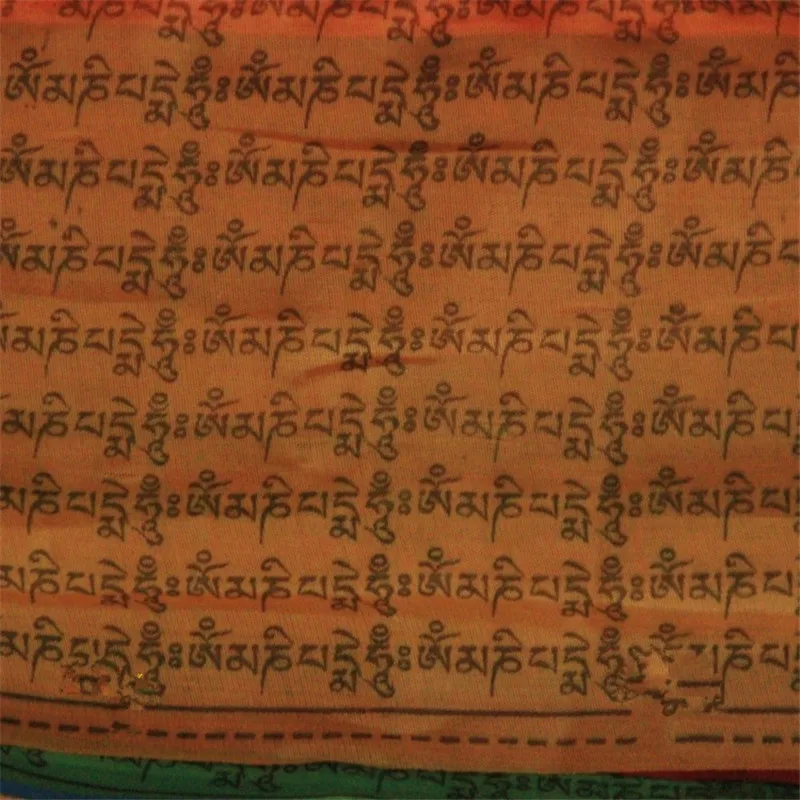 ཨོཾ་མ་ཎི་པདྨེ་ཧཱུྃ༔ ཨོཾ་མ་ཎི་པདྨེ་ཧཱུྃ༔
ཨོཾམཎིཔདྨེཧཱུྃ༔ཨོཾམཎིཔདྨེཧཱུྃ༔ཨོཾམཎིཔདྨེཧཱུྃ༔ཨོཾམ
ཨོཾམཎིཔདྨེཧཱུྃ༔ཨོཾམཎིཔདྨེཧཱུྃ༔ཨོཾམཎིཔདྨེཧཱུྃ༔ཨོཾམཎི
ཨོཾམཎིཔདྨེཧཱུྃ༔ཨོཾམཎིཔདྨེཧཱུྃ༔ཨོཾམཎིཔདྨེཧཱུྃ༔ཨོཾམཎི
མཎིཔདྨེཧཱུྃ༔ཨོཾམཎིཔདྨེཧཱུྃ༔ཨོཾམཎིཔདྨེཧཱུྃ༔ཨོཾམཎི
མཎིཔདྨེཧཱུྃ༔ཨོཾམཎིཔདྨེཧཱུྃ༔ཨོཾམཎིཔདྨེཧཱུྃ༔ཨོཾམཎི
མཎིཔདྨེཧཱུྃ༔ཨོཾམཎིཔདྨེཧཱུྃ༔ཨོཾམཎིཔདྨེཧཱུྃ༔ཨོཾམཎིཔ
མཎིཔདྨེཧཱུྃ༔ཨོཾམཎིཔདྨེཧཱུྃ༔ཨོཾམཎིཔདྨེཧཱུྃ༔ཨོཾམཎིཔ
མཎིཔདྨེཧཱུྃ༔ཨོཾམཎིཔདྨེཧཱུྃ༔ཨོཾམཎིཔདྨེཧཱུྃ